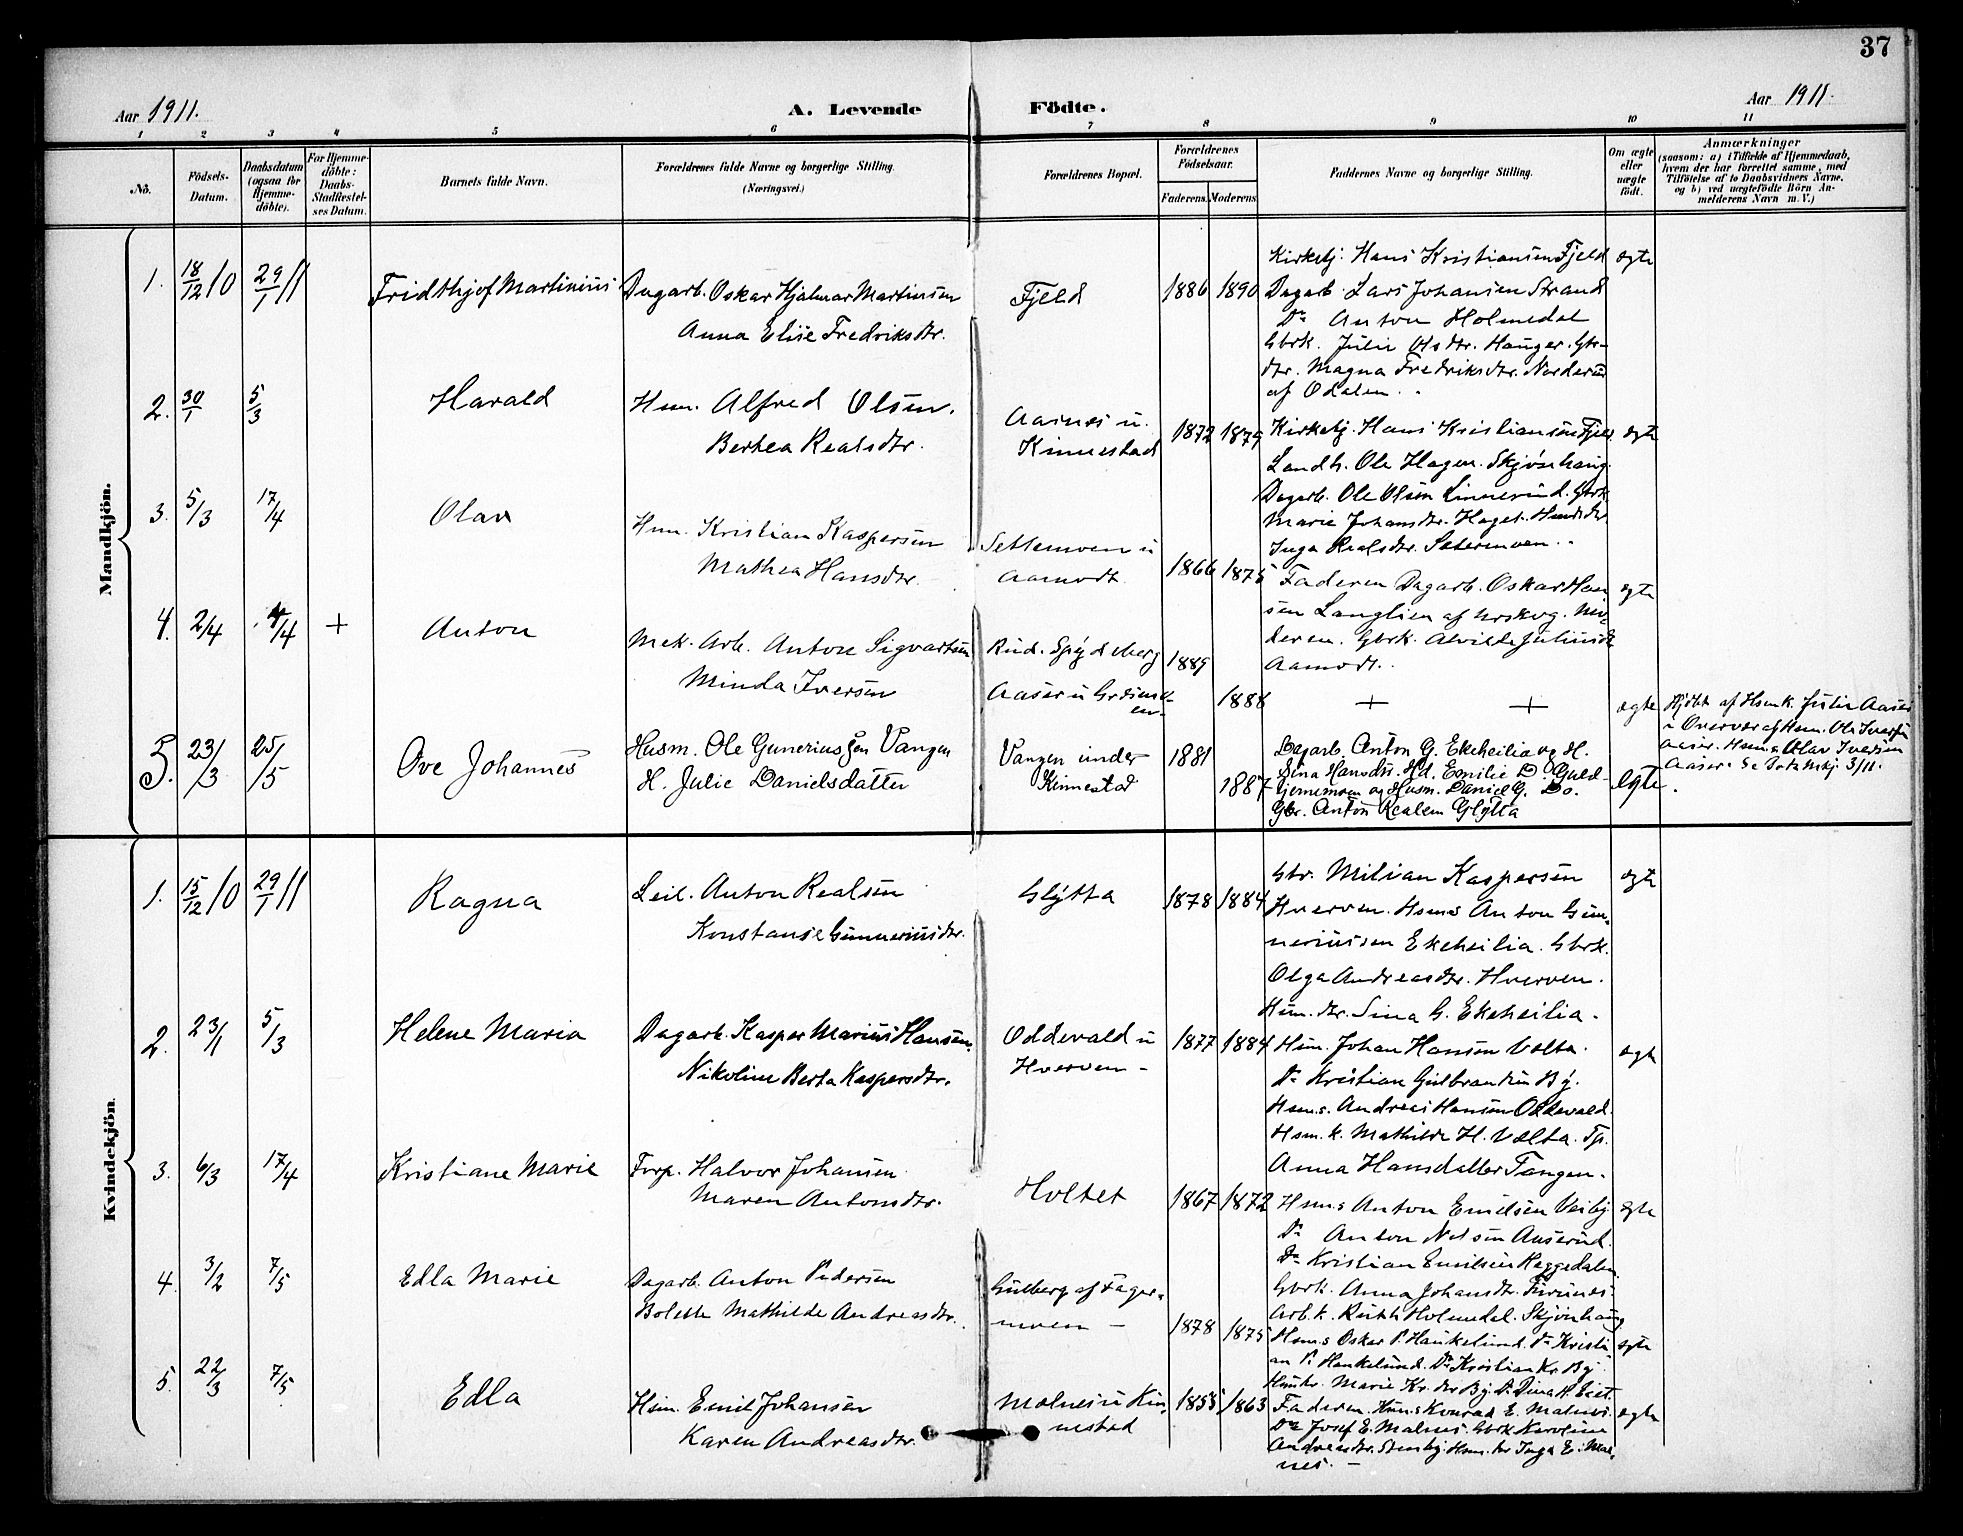 37
Aar 1911.
A. Levende Födte.
Aar 1911.
1 2 3 4 5 6 7 8 9 10 11
No.
Födsels-
Datum.
Daabsdatum
(ogsaa for
Hjemme-
döbte).
For Hjemme-
döbte:
Daabs-
Stadfæstel-
ses Datum.
Barnets fulde Navn.
Forældrenes fulde Navne og borgerlige Stilling.
(Næringsvei.)
Forældrenes Bopæl.
Forældrenes
Födselsaar.
Faderens. Moderens.
Faddernes Navne og borgerlige Stilling.
Om ægte
eller
uægte
födt.
Anmærkninger
(saasom: a) i Tilfælde af Hjemmedaab,
hvem der har forrettet samme, med
Tilföielse af to Daabsvidners Navne,
og b) ved uægtefödte Börn An-
melderens Navn m. V.)
Mandkjön.
1. 18/12 10 29/1 11 Fridthjof Martinius
Dagarb. Oskar Hjalmar Martinsen
Anna Elise Fredriksdtr.
Fjeld
1886 1890
Kirketj. Hans Kristiansen Fjeld
Dagarb. Lars Johansen Strand
Do Anton Holmedal
Gbrk. Julie Olsdtr. Hauger. Gbr-
dtr. Magna Fredriksdtr. Norderud
af Odalen.
ægte
2. 30/1 5/3 Harald
Hsm. Alfred Olsen.
Berthea Realsdtr.
Aasnes u.
Kinnestad
1872 1879
Kirketj. Hans Kristiansen Fjeld.
Landh. Ole Hagen. Skjønhaug.
Dagarb. Ole Olsen Linnerud. Gbrk.
Marie Johansdtr. Haget. Hsmdtr.
Inga Realsdtr. Setermoen.
ægte
3. 5/3 17/4 Olav
Hsm. Kristian Kaspersen
Mathea Hansdtr.
Settemoen u
Aamodt
1866 1875
Faderen Dagarb. Oskar Han
sen Langlien af Urskog. Mo-
deren. Gbrk. Alvilde Juliusdtr
Aamodt.
ægte
4. 2/4 4/4 + Anton
Mek. Arb. Anton Sigvartsen
Minda Iversen
Rud. Spydeberg
Aaser u
1889 1888
+ +
ægte
Hjdbt af Hsmk. Julie Aaser
i Overvær af Hsm. Ole Iversen
Aaser. Hsms Olav Iversen
Aaser. Se 3/11.
5. 23/3 25/5 Ove Johannes
Husm. Ole Guneriussen Vangen
H. Julie Danielsdatter
Vangen under
Kinnestad
1881 1887
Dagarb. Anton G. Ekeheilia og H.
Sina Hansdtr. Hd. Emilie D. Guld-
tjernmoen og Husm. Daniel G. Do.
Gbr. Anton Realsen Glytta
Egte.
Kvindekjön.
1. 15/12 10 29/1 11 Ragna
Leil. Anton Realsen
Konstanse Gunneriusdtr.
Glytta
1878 1884
Gbr. Milian Kaspersen
Hverven. Hsms Anton Gun-
neriussen Ekeheilia. Gbrk.
Olga Andreasdtr. Hverven.
Hsm. dtr. Sina G. Ekeheilia.
ægte
2. 23/1 5/3 Helene Maria
Dagarb. Kasper Marius Hansen.
Nikoline Berta Kaspersdtr.
Oddevald u
Hverven -
1877 1884
Hsm. Johan Hansen Volta.
Do Kristian Gulbrandsen By.
Hsms. Andreas Hansen Oddevald.
Hsm. k. Mathilde H. Volta. Tp.
Anna Hansdatter Tangen.
ægte
3. 6/3 17/4 Kristiane Marie
Forp. Halvor Johansen
Maren Antonsdtr.
Holtet
1867 1872
Hsms Anton Emilsen Veiby
Do Anton Nilsen Aaserud.
Do Kristian Emilsen Haggedalen.
Gbrk. Anna Johansdtr.
Arb. k. Ruth Holmedal. Skjønhaug
ægte
4. 3/2 7/5 Edla Marie
Dagarb. Anton Pedersen
Bolette Mathilde Andreasdtr.
Gulberg af Fager-
moen -
1878 1875
Hsms Oskar P. Haukelund. Do Kristi-
an P. Haukelund. Do Kristian Kr. By.
Hsmdtr. Marie Kr. dtr By. Do Dina H.
ægte
5. 22/3 7/5 Edla
Hsm. Emil Johansen
Karen Andreasdtr.
Molnes u Kin-
nestad
1855 1863
Faderen. Hsms Konrad E. Malnes.
Do Josef E. Malnes. Gbrk Karoline
Andreasdtr. Stenby. Hsm. dtr Inga E. Mal-
nes. -
ægte